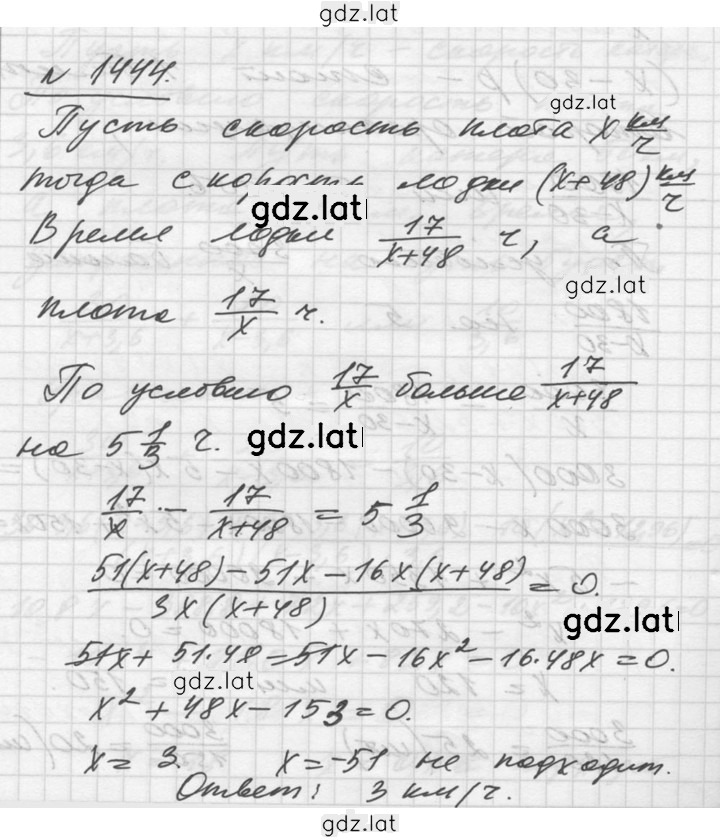 gdz.lat
N 1444.
gdz.lat
Пусть скорость плота x км/ч
тогда скорость лодки (x+48) км/ч.
gdz.lat
Время лодки 17/(x+48) ч, а
gdz.lat
плота 17/x ч.
По условию 17/x больше 17/(x+48)
на 5 1/3 ч.
gdz.lat
17/x - 17/(x+48) = 5 1/3
(51(x+48) - 51x - 16x(x+48))/(3x(x+48)) = 0.
gdz.lat
51x + 51·48 = 51x - 16x² - 16·48x = 0.
gdz.lat
x² + 48x - 153 = 0.
x = 3. x = -51 не подходит.
Ответ: 3 км/ч.
gdz.lat